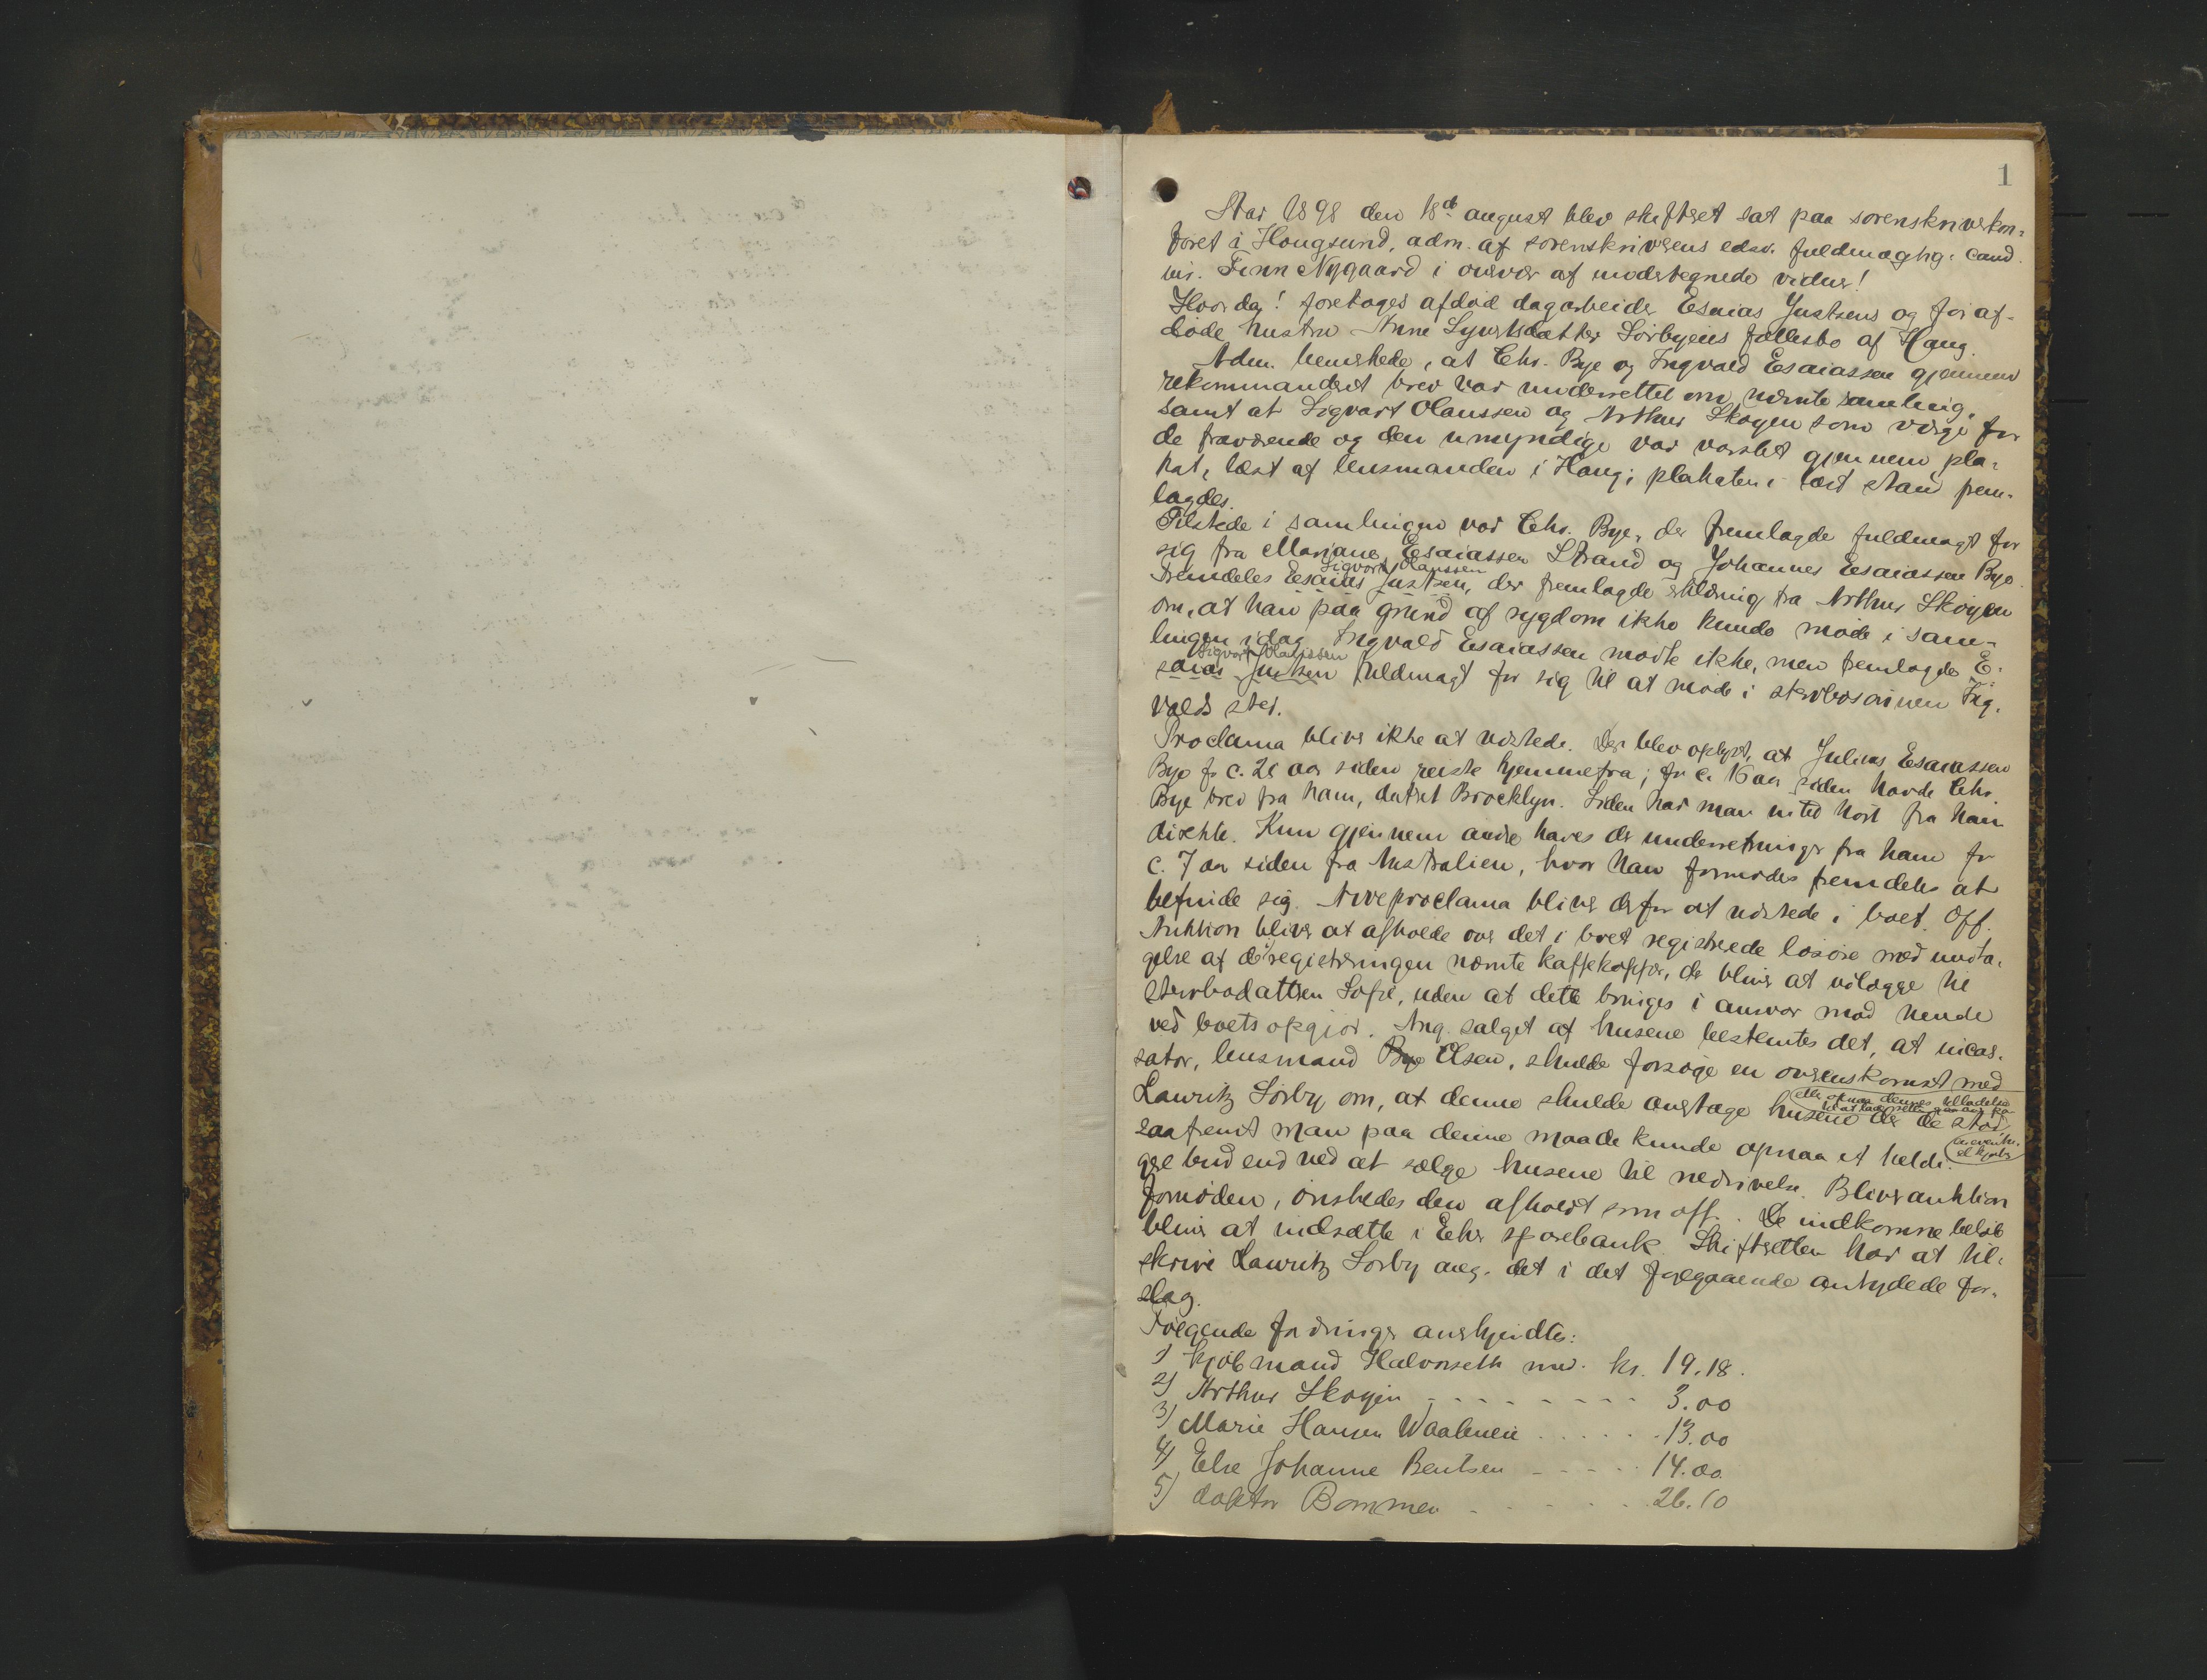 1
Aar 1898 den 18de august blev skifteret sat paa sorenskriverkon-
toret i Hougsund, adm. af sorenskriverens edsv. fuldmægtig cand.
iur. Finn Nygaard i overvær af undertegnede vidner!
Hvorda! foretages afdød dagarbeider Esaias Justsens og før af-
døde hustru Anne Syvertsdatter Sørbyeies fællesbo af Haug.
Adm. bemerkede, at Chr. Bye og Ingvald Esaiassen gjennem
rekommanderet brev var underrettet om nærnte samling,
samt at Sigvart Olaussen og Arthur Skogen som værge for
de fraværende og den umyndige var varslet gjennem pla-
kat, læst af lensmanden i Haug; plakaten i læst stand frem-
lagdes.
Tilstede i samlingen var Chr. Bye, der fremlagde fuldmagt for
sig fra Marjane Esaiassen Strand og Johannes Esaiassen Bye.
Sigvart Olaussen
Fremdeles Esaias Justsen, der fremlagde erklæring fra Arthur Skogen
om, at han paa grund af sygdom ikke kunde møde i sam-
lingen idag. Ingvald Esaiassen mødte ikke, men fremlagde E-
Sigvart Olaussen
saias Justsen fuldmagt for sig til at møde i stervbosønnen Ing-
valds sted.
Proclama bliver ikke at udstede. Der blev oplyst, at Julius Esaiassen
Bye for c. 28 aar siden reiste hjemmefra; for c. 16 aar siden havde Chr.
Bye brev fra ham, datret Brocklyn. Siden har man intet hørt fra ham
direkte. Kun gjennem andre haves der underretninger fra ham for
c. 7 aar siden fra Australien, hvor han formodes fremdeles at
befinde sig. Arveproclama bliver derfor at udstede i boet. Off.
Auktion bliver at afholde over det i boet registrerede løsøre med undta-
gelse af de i registreringen nævnte kaffekopper, der bliver at udlægge til
stervbodatteren Sofie, uden at dette bringes i ansvar mod hende
ved boets opgjør. Ang. salget af husene bestemtes det, at incas-
sator, lensmand Bye Olsen, skulde forsøge en overenskomst med
eller opnaa dennes tilladelse
Lauritz Sørby om, at denne skulde overtage husene der de stod
saafremt man paa denne maade kunde opnaa et heldi-
gere bud end ved at sælge husene til nedrivelse. Bliver auktion
fornøden, ønskedes den afholdt som off. De indkomne beløb
bliver at indsætte i Eker sparebank. Skifteretten har at til-
skrive Lauritz Sørby ang. det i det foregaaende antydede for-
slag.
Følgende fordringer anerkjendtes:
1) Kjøbmand Halvorseth med kr. 19.18.
2) Arthur Skogen - - - - - - - - 3.00
3) Marie Hansen Waalneie . . . . . 13.00
4) Else Johanne Bentsen - - - - - 14.00
5) doktor Bommen - - - - - - - 26.10